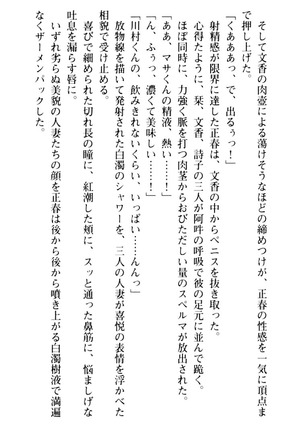 そして文香の肉壺による蕩けそうなほどの締めつけが、正春の性感を一気に頂点ま
で押し上げた。
「くあああっ、で、出るぅっ！」
射精感が限界に達した正春は、文香の中からペニスを抜き取った。
心得たように、栞、文香、詩子の三人が阿吽の呼吸で彼の足元に並んで跪く。
ほぼ同時に、力強く脈を打つ肉茎からおびただしい量のスペルマが発射された。
「ああ、マサくんの精液、熱い……！」
「ん、ふぅっ、濃くて美味しい……！」
「川村くんの、飲みきれないくらい、いっぱい……んんっ」
放物線を描いて発射された白濁のシャワーを、三人の人妻が喜悦の表情を浮かべた
相貌で受け止める。
喜びで細められた切れ長の瞳に、紅潮した頬に、スッと通った鼻筋に、悩ましげな
吐息を漏らす唇に。
いずれ劣らぬ美貌の人妻たちの顔を正春は後から後から噴き上がる白濁樹液で満遍
なくザーメンパックした。